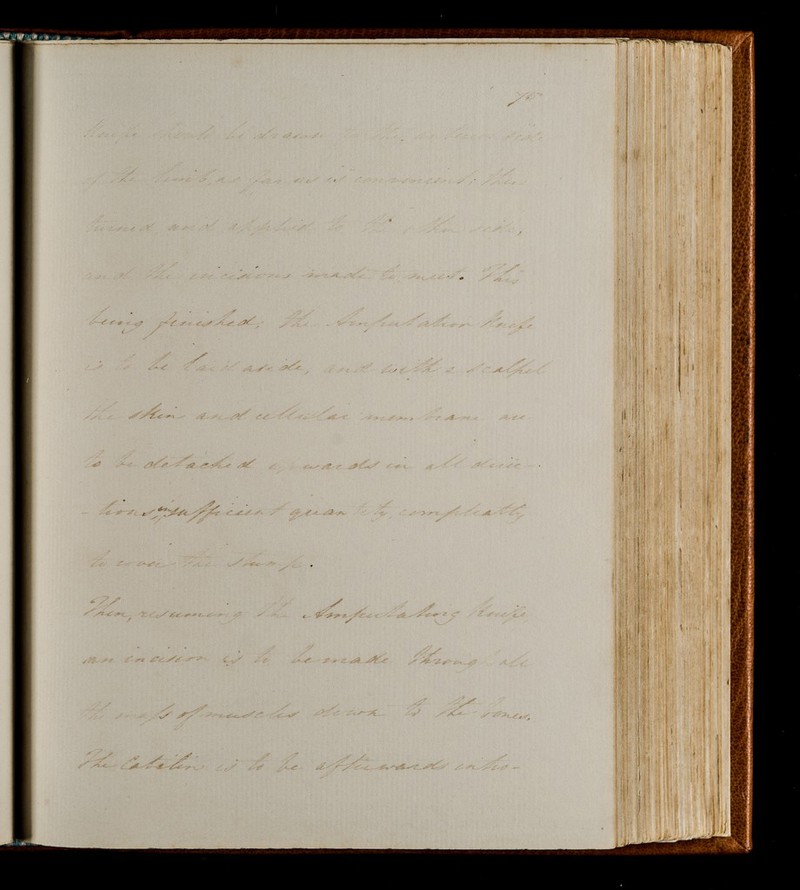 75
knife should be drawn to the anterior side
of the limb, as far as is convenient: then
turned and applied to the other side,
and the incisions made to meet. This
being finished; the Amputation Knife
is to be laid aside, and with a scalpel
the skin and cellular membrane are
to be detached upwards in all direc-
-tions, in sufficient quantity compleatly
to cover the stump.
Then, resuming the Amputating Knife
an incision is to be made through all
the mass of muscles down to the bones.
The Catalin is to be afterwards intro-